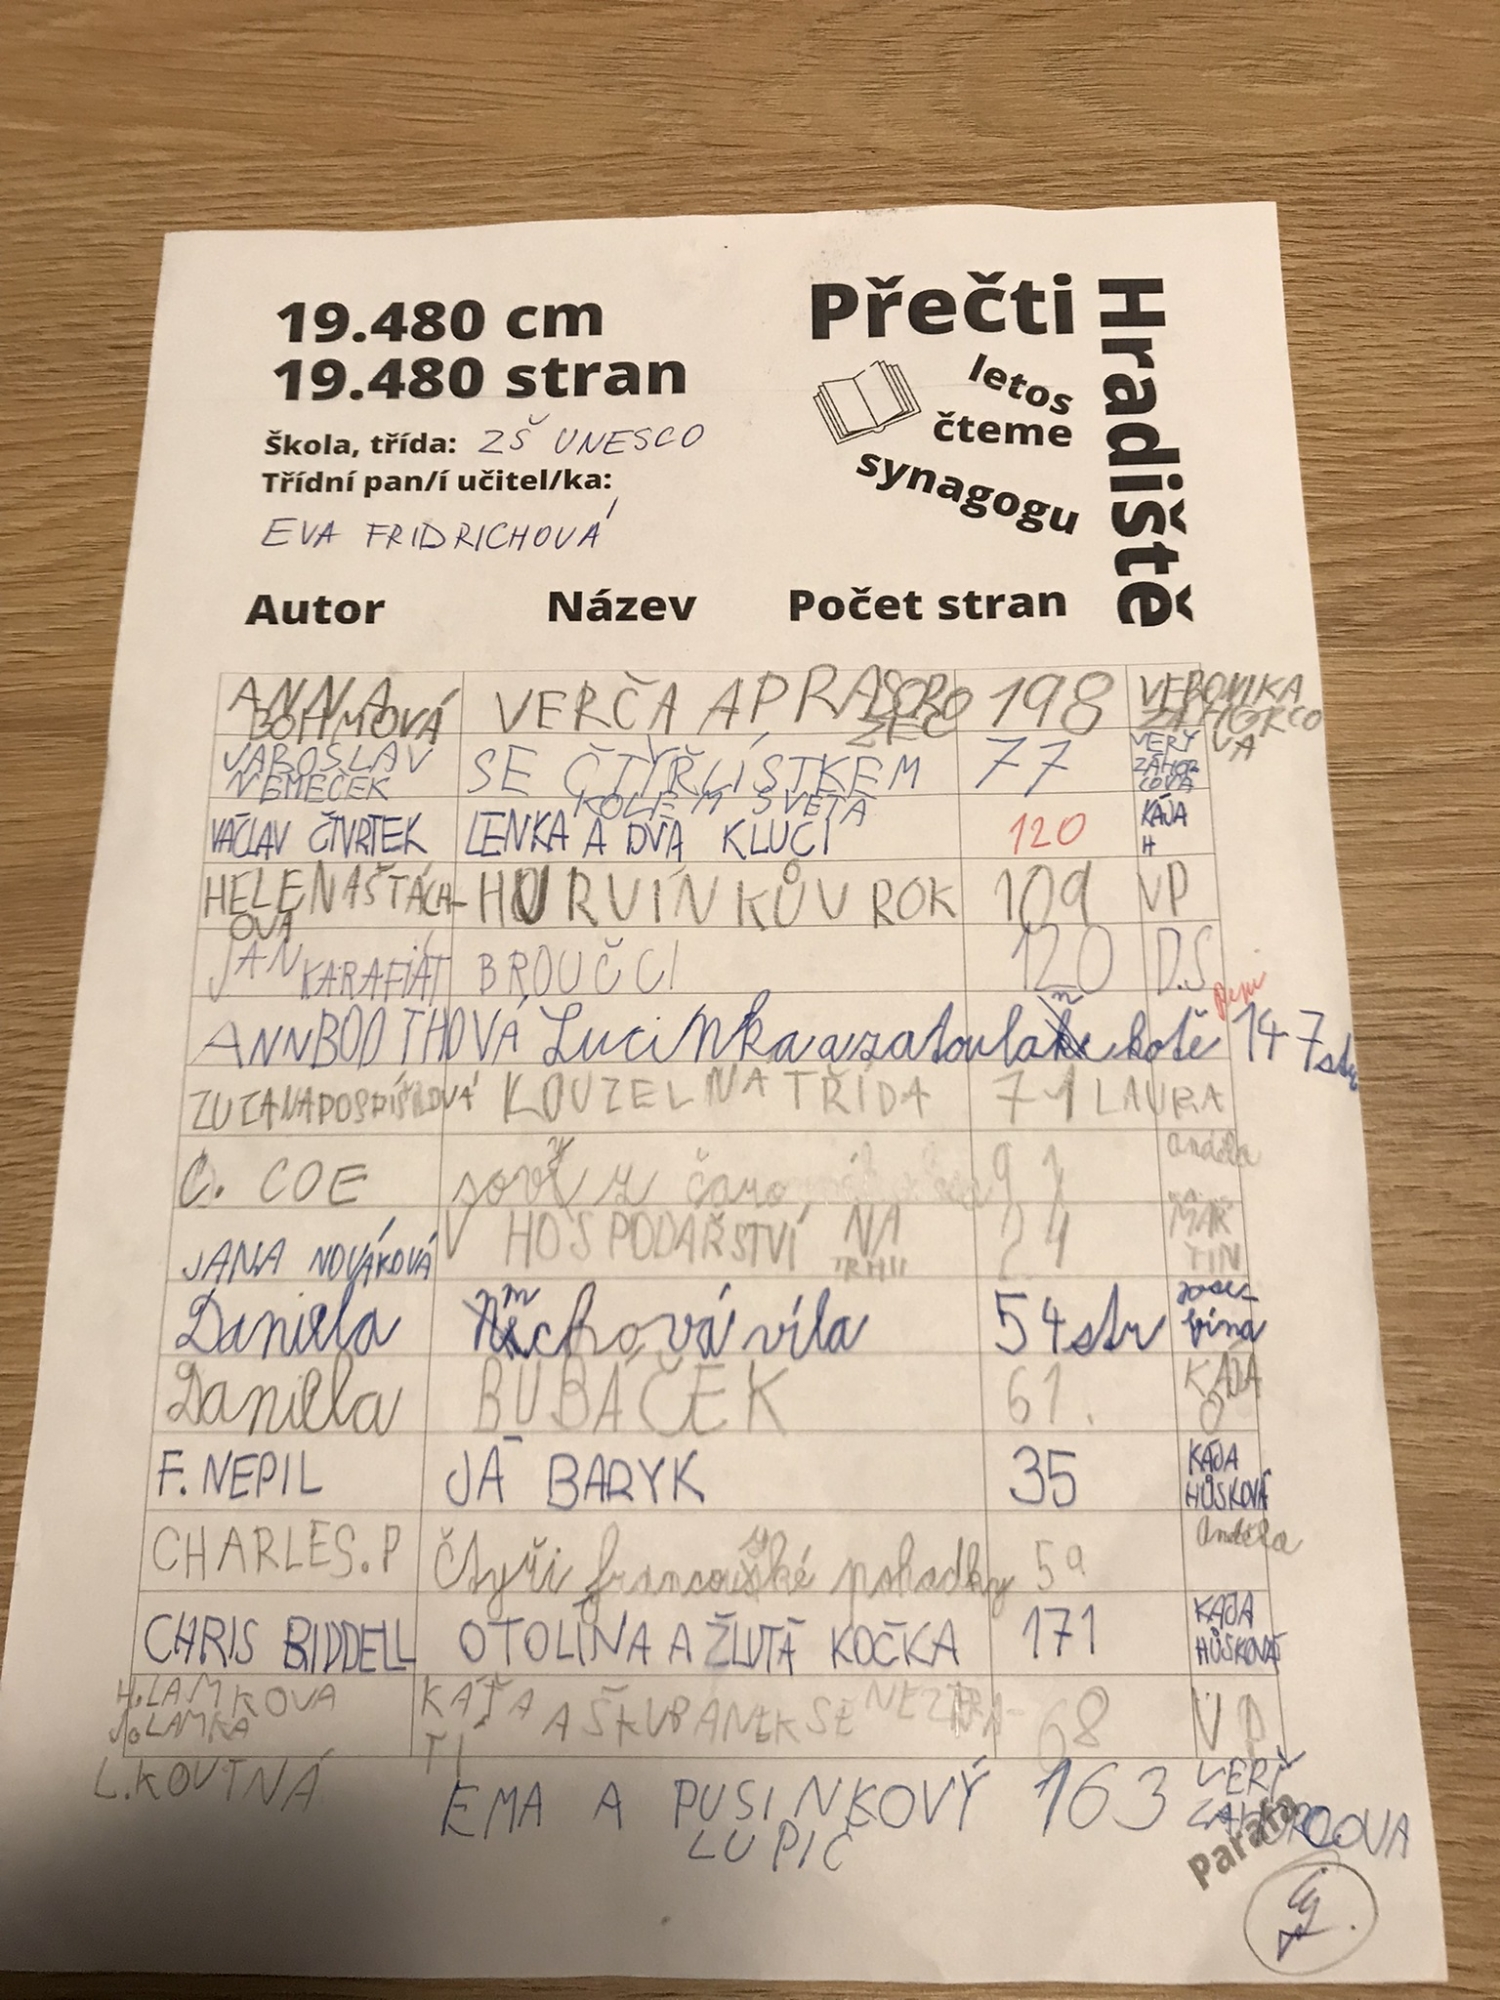 19.480 cm
19.480 stran
Přečti
Hradiště
letos
čteme
synagogu
Škola, třída: ZŠ UNESCO
Třídní pan/í učitel/ka:
EVA FRIDRICHOVÁ
Autor Název Počet stran
ANNA BÖHMOVÁ VERČA A PRA 198 VERONIKA
JAROSLAV NĚMEČEK SE ČTYŘLÍSTKEM KOLEM SVĚTA 77 VERY ZÁHOR COVA
VÁCLAV ČTVRTEK LENKA A DVA KLUCI 120 KÁJA H
HELENA ŠTÁCH- OVÁ HURVÍNKŮV ROK 109 VP
JAN KARAFIÁT BROUČCI 120 D.S
ANN BOOTHOVÁ Lucinka a zatoulané kotě 147 str
ZUZANA POSPÍŠILOVÁ KOUZELNÁ TŘÍDA 71 LAURA
C. COE sovy z čaro 91 anděla
JANA NOVÁKOVÁ V HOSPODAŘSTVÍ NA TRHU 24 MAR TIN
Daniela mechová víla 54 str
Daniela BUBÁČEK 61. KÁJA
F. NEPIL JÁ BARYK 35 KÁJA HŮSKOVÁ
CHARLES.P Čtyři francouzské pohadky 59 anděla
CHRIS RIDDELL OTOLINA A ŽLUTÁ KOČKA 171 KÁJA HŮSKOVÁ
H.LAMKOVA J.LAMKA KÁŤA A ŠKUBÁNEK SE NEZTRA- TÍ 68 VP
L.KOUTNÁ EMA A PUSINKOVÝ LUPIČ 163 VERČ ZAHORCOVA
Parafa